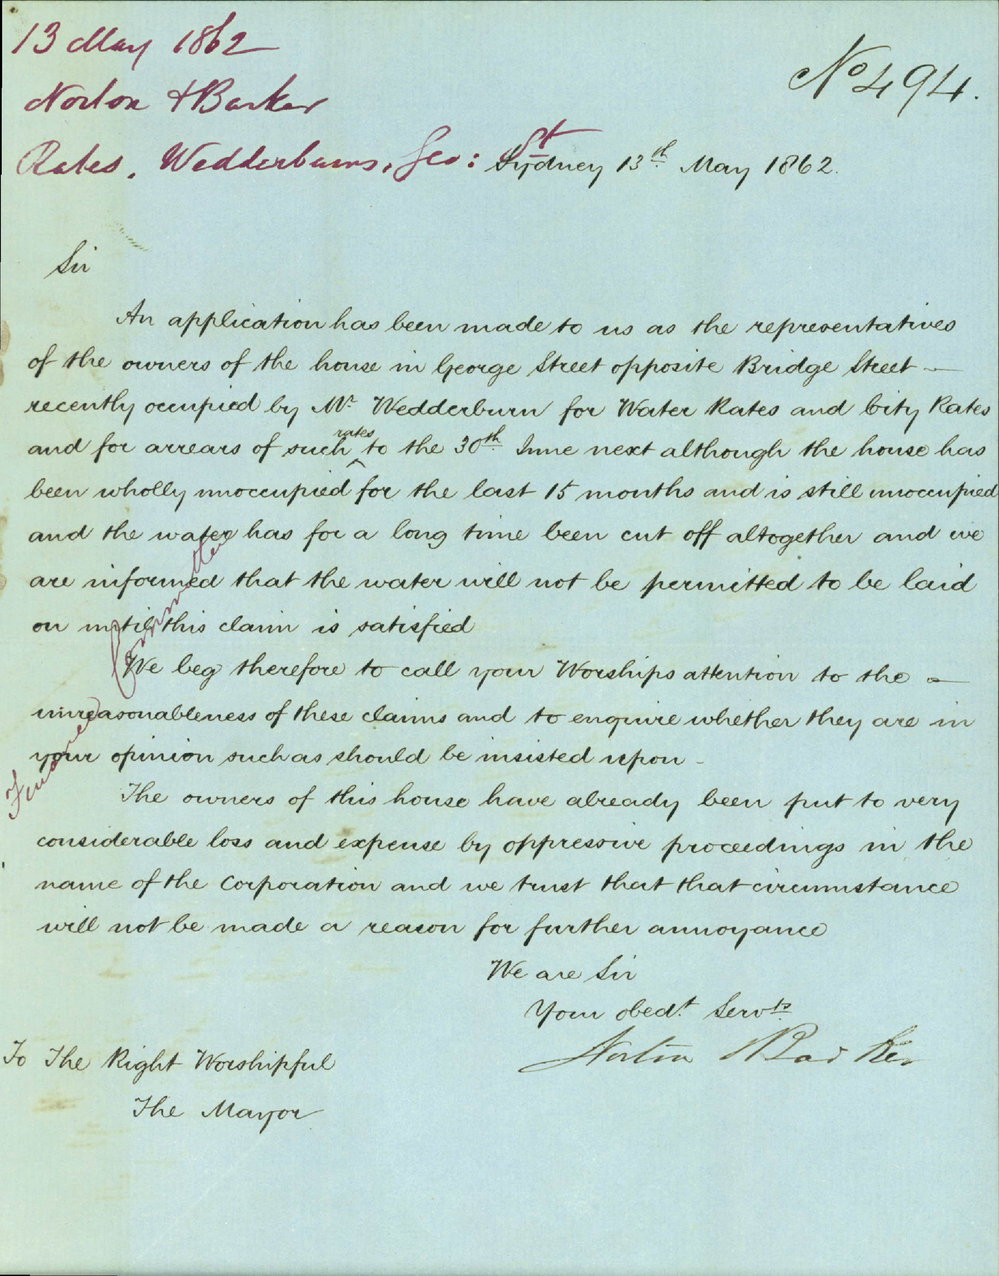 13 May 1862
Norton & Barker
Rates, Wedderburns, Geo: St
No 494.
Sydney 13th May 1862.
Sir
An application has been made to us as the representatives
of the owners of the house in George Street opposite Bridge Street —
recently occupied by Mr Wedderburn for Water Rates and City Rates
and for arrears of such ^rates to the 30th June next although the house has
been wholly unoccupied for the last 15 months and is still unoccupied
and the water has for a long time been cut off altogether and we
are informed that the water will not be permitted to be laid
on until this claim is satisfied
We beg therefore to call your Worships attention to the —
unreasonableness of these claims and to enquire whether they are in
your opinion such as should be insisted upon -
Finance Committee
The owners of this house have already been put to very
considerable loss and expense by oppressive proceedings in the
name of the Corporation and we trust that that circumstance
will not be made a reason for further annoyance
We are Sir
Your obedt Servts
Norton & Barker
To The Right Worshipful
The Mayor